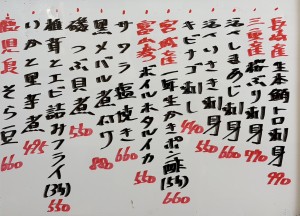 長崎産 生本鮪トロ刺身 990
三重産 活ぶり刺身 770
しまあじ刺身 660
いさき刺身 550
キビナゴ刺身 440
宮城産 一年生かきポン酢(5ヶ) 660
ボイルホタルイカ
サワラ塩焼き 660
煮付け 880
磯つぶ貝煮 550
椎茸とエビ詰みフライ(3ヶ) 550
いかと里芋煮 495
鹿児島 そら豆 660